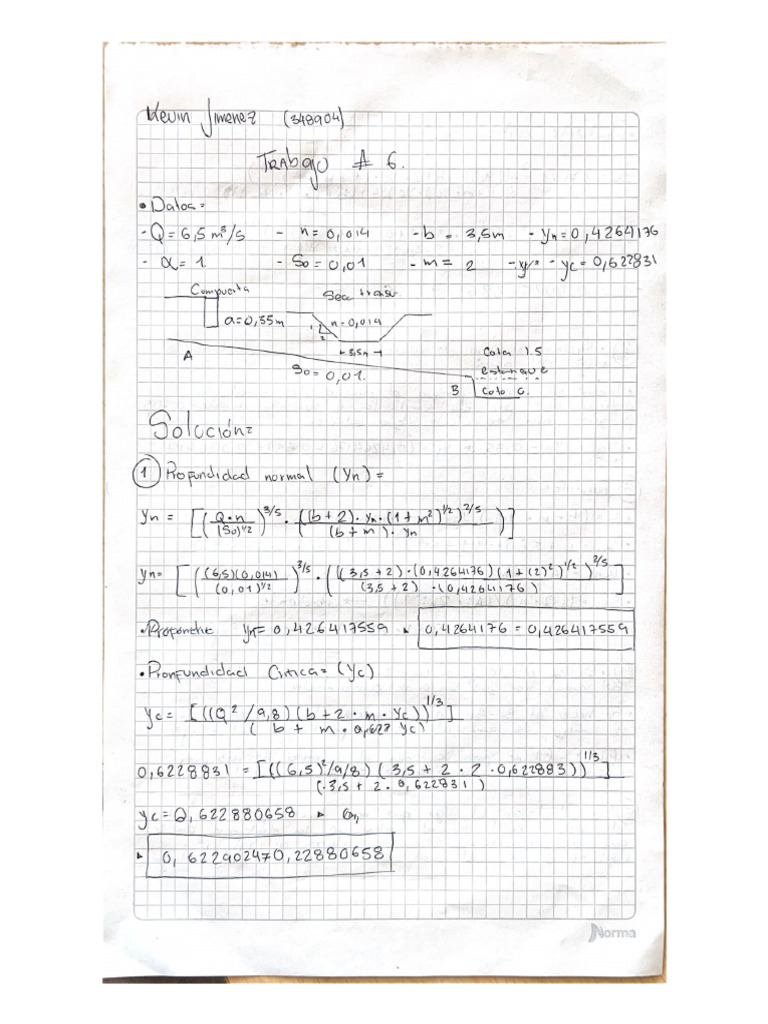 Kevin Jimenez (348904)
Trabajo # 6.
• Datos=
- Q = 6,5 m³/s - n = 0,014 - b = 3,5m - yn = 0,4264176
- α = 1 - So = 0,01 - m = 2 - yc = 0,622831
Compuerta Sec trasv
a = 0,35m 1 2 n = 0,014
3,5m
A So = 0,01. Cota 1.5
estanque
B Cota 0.
Solución=
1 Profundidad normal (Yn) =
yn = [((Q·n)/(So)^1/2)^3/5 · (((b+2)·yn·(1+m²)^1/2)^2/5/((b+m)·yn))]
yn= [(((6,5)(0,014))/(0,01)^1/2)^3/5 · (((3,5+2)·(0,4264176)(1+(2)²)^1/2)/((3,5+2)·(0,4264176)))^2/5]
yn= 0,426417559 ▸ 0,4264176 = 0,426417559
• Pronfundidad Critica= (yc)
yc = [((Q²/9,8)(b+2·m·yc))/(b+m·0,622 yc)]^1/3
0,6228831 = [(((6,5)²/9/8)(3,5+2·2·0,622883))/(·3,5+2·0,622831)]^1/3
yc = 0,622880658 ▸
▸ 0,622902470,22880658
Norma